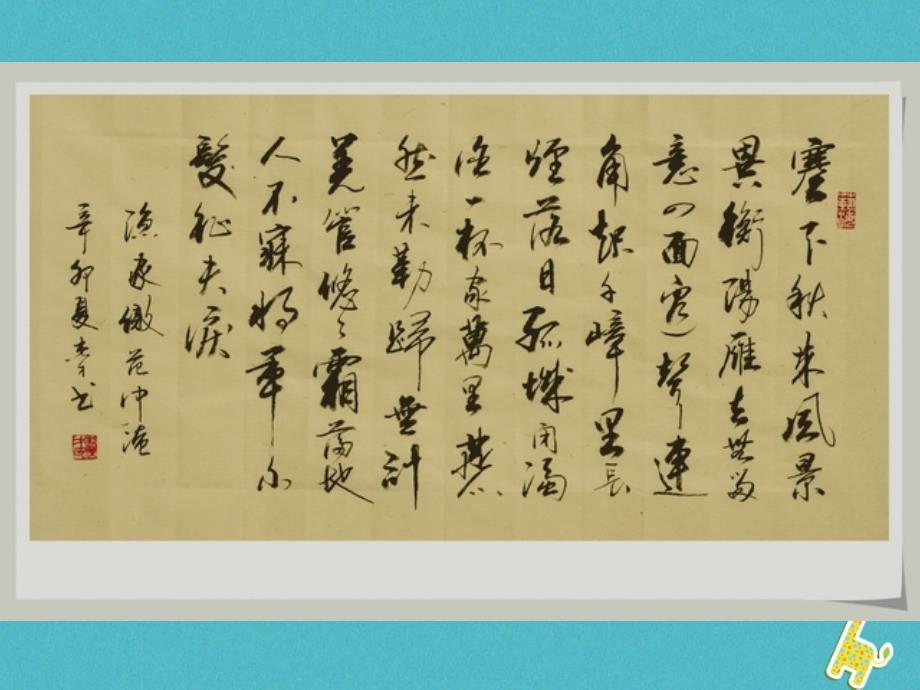 塞下秋来風景
異衡陽雁去無留
意四面邊聲連
角起千嶂里長
煙落日孤城閉濁
酒一杯家萬里燕
然未勒歸無計
羌管悠〻霜滿地
人不寐將軍白
髮征夫淚
漁家傲范仲淹
辛卯夏书